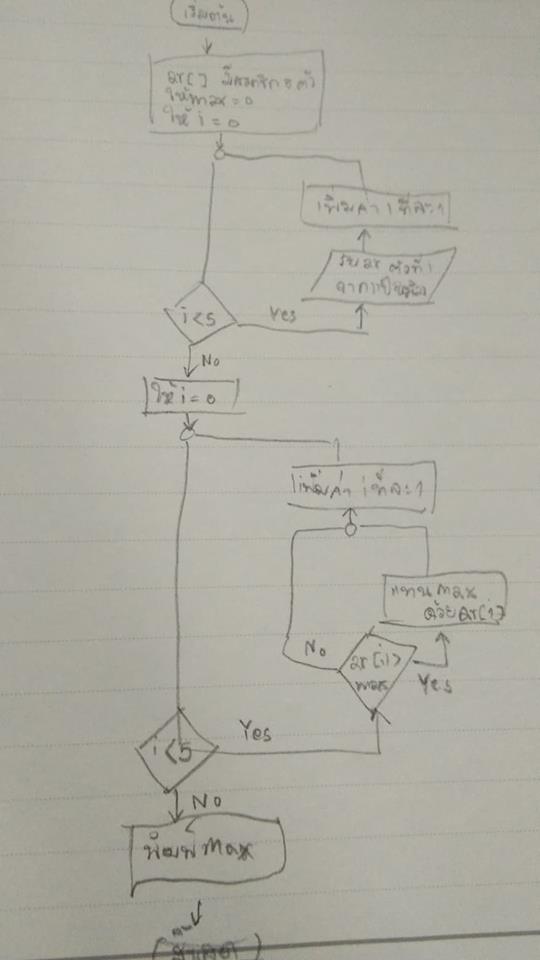 เริ่มต้น
ar[ ] มีสมาชิก 5 ตัว
ให้ max = 0
ให้ i = 0
เพิ่มค่า i ทีละ 1
รับ ar ตัวที่ i
จากแป้นพิมพ์
i < 5
Yes
No
ให้ i = 0
เพิ่มค่า i ทีละ 1
แทน max
ด้วย ar[i]
No
ar[i] >
max
Yes
i < 5
Yes
No
พิมพ์ max